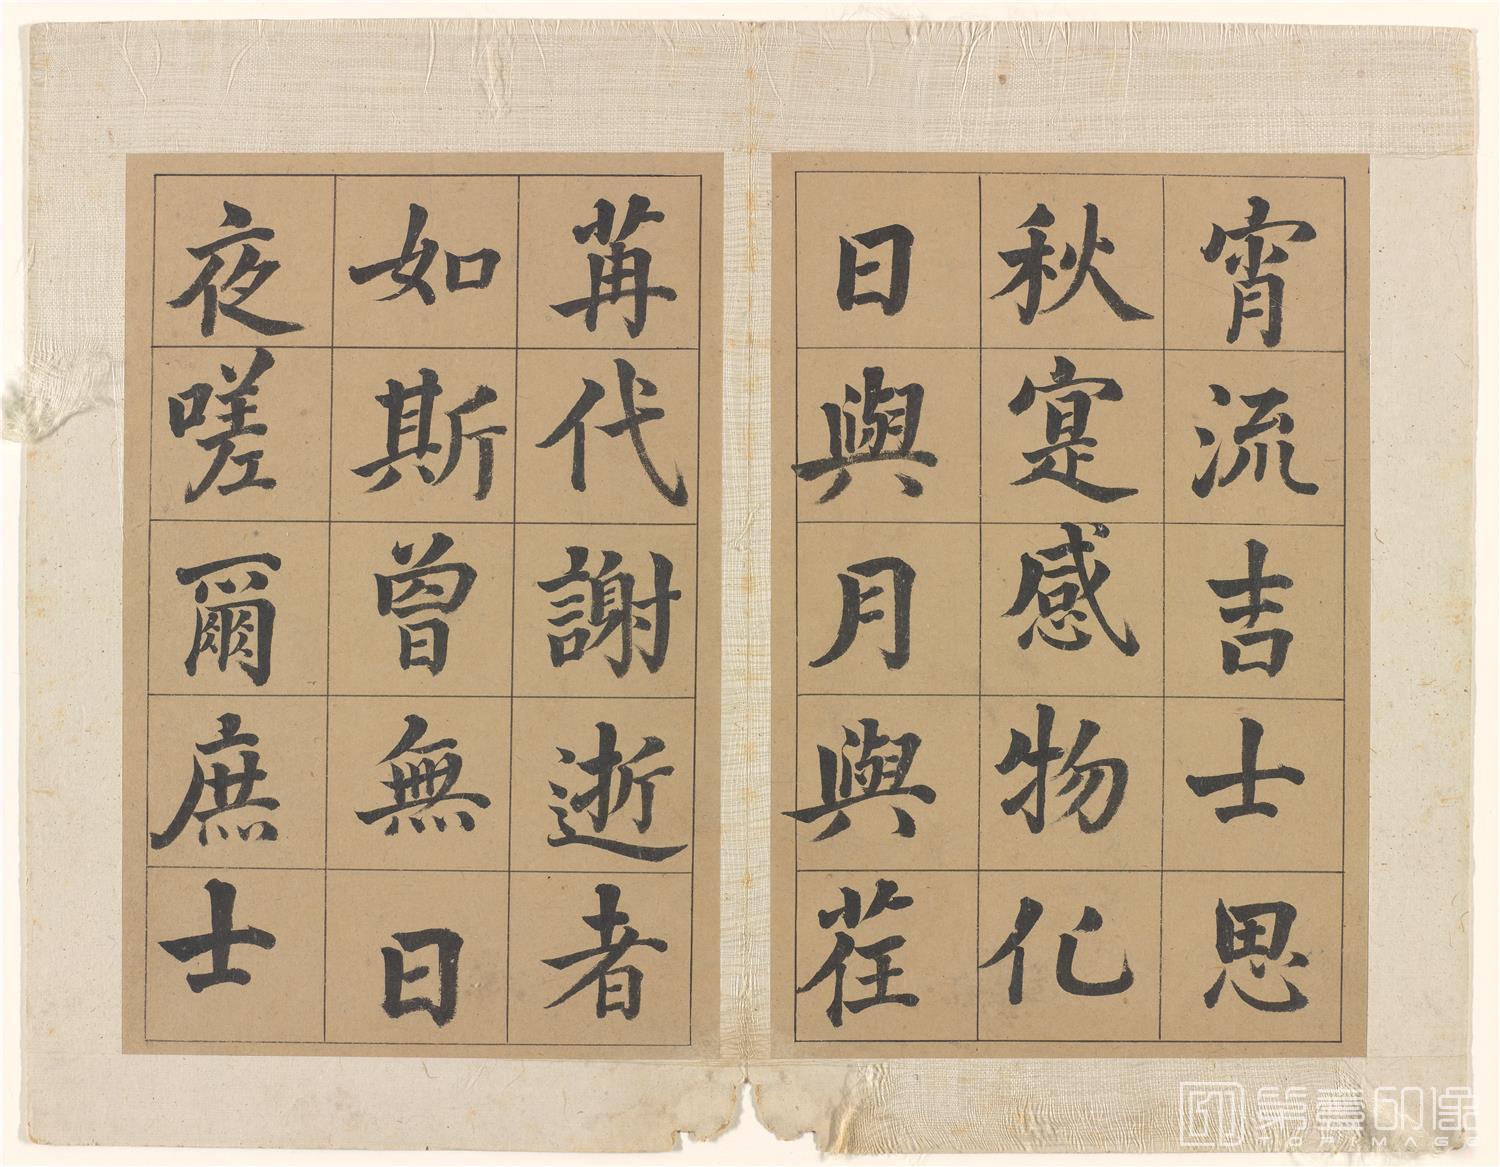 宵流吉士思
秋寔感物化
日與月與荏
苒代謝逝者
如斯曾無日
夜嗟爾庶士
第壹印像
TOPIMAGE